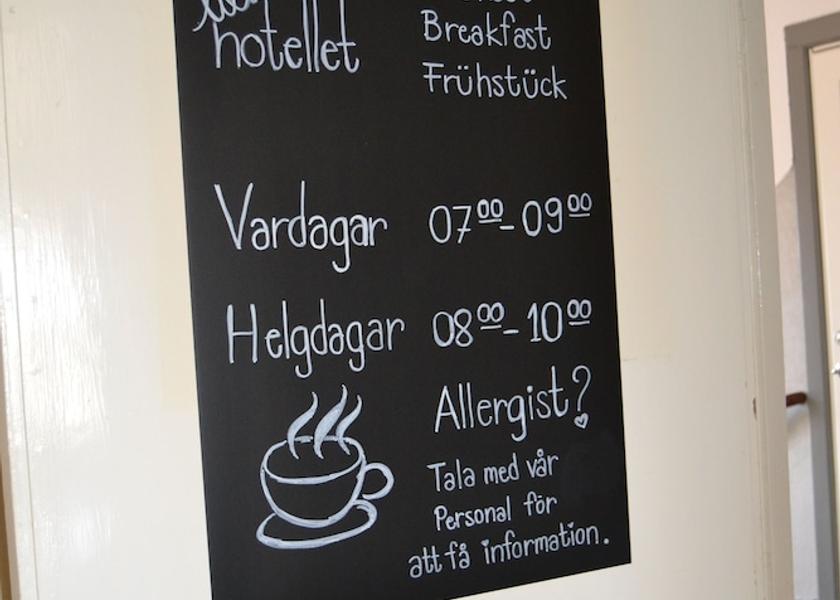 hotellet
Breakfast
Frühstück
Vardagar 07⁰⁰-09⁰⁰
Helgdagar 08⁰⁰-10⁰⁰
Allergist?
Tala med vår
Personal för
att få information.